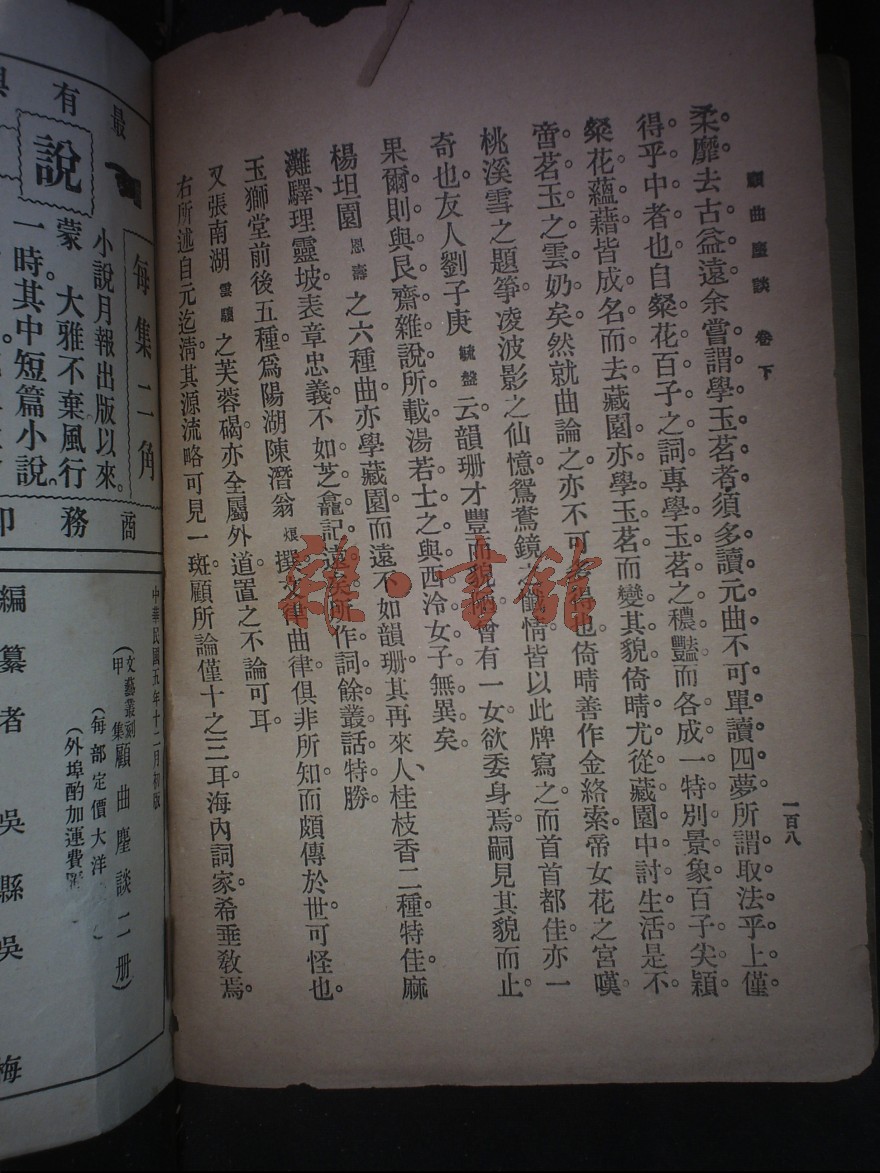 顧曲麈談 卷下
一百八
柔靡去古益遠余嘗謂學玉茗者須多讀元曲不可單讀四夢所謂取法乎上僅
得乎中者也。自粲花百子之詞專學玉茗之穠豔而各成一特別景象百子尖穎
粲花蘊藉皆成名而去藏園亦學玉茗而變其貌倚晴尤從藏園中討生活是不
啻茗玉之雲奶矣。然就曲論之亦不可多得也。倚晴善作金絡索。帝女花之宮嘆
桃溪雪之題箏凌波影之仙憶鴛鴦鏡之 情皆以此牌寫之。而首首都佳。亦一
奇也。友人劉子庚毓盤云韻珊才豐而貌 曾有一女欲委身焉。嗣見其貌而止。
果爾。則與艮齋雜說所載湯若士之與西泠女子無異矣。
楊坦園恩壽之六種曲亦學藏園而遠不如韻珊。其再來人、桂枝香二種特佳。麻
灘驛、理靈坡。表章忠義。不如芝龕記遠矣。所作詞餘叢話特勝
玉獅堂前後五種。爲陽湖陳潛翁烺撰。文律曲律俱非所知。而頗傳於世。可怪也。
又張南湖雲驤之芙蓉碣。亦全屬外道。置之不論可耳
右所述自元迄淸。其源流略可見一斑。顧所論僅十之三耳。海內詞家希垂敎焉。
最有興
每集二角
說
小說月報出版以來。
蒙 大雅不棄風行
一時其中短篇小說
商務印
中華民國五年十二月初版
(文藝叢刻甲集顧曲麈談二册)
(每部定價大洋
(外埠酌加運費
編纂者 吳縣吳梅
雜·書館